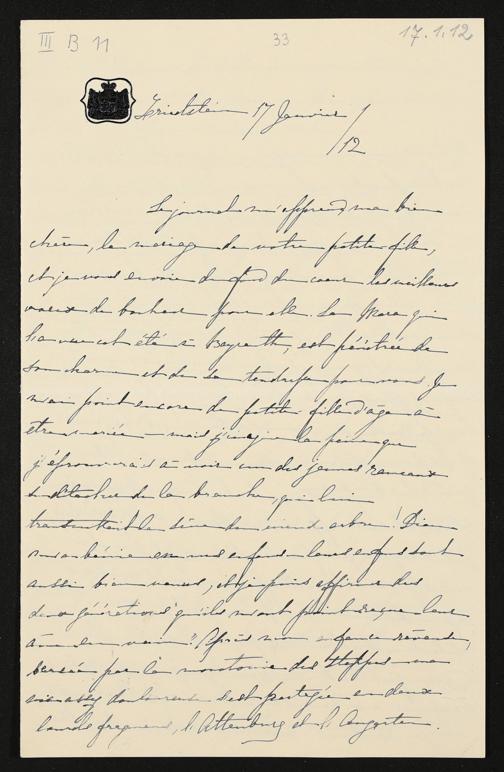 III B 11
33
17.1.12
Friedstein 17 Janvier /
/12
Le journal m'apprend, ma bien
chère, le mariage de votre petite fille,
et je vous envoie du fond du cœur les meilleurs
vœux de bonheur pour elle. La Mara qui
l'a vue cet été à Bayreuth, est pénétrée de
son charme et de sa tendresse pour vous. Je
n'ai point encore de petite fille d'âge à
être mariée – mais j'imagine la peine que
j'éprouverais à voir un des jeunes rameaux
se détacher de la branche, qui lui
transmettait la sève du vieux arbre! Dieu
m'a bénie en mes enfants leurs enfants sont
aussi bien venus, et je puis affirmer des
deux générations qu'ils n'ont point reçu leur
âme en vain". Après mon enfance rêveuse,
bercée par la monotonie des steppes – ma
vie assez douloureuse s'est partagée en deux
lourds fragments, l'Altenburg et l'Augarten.